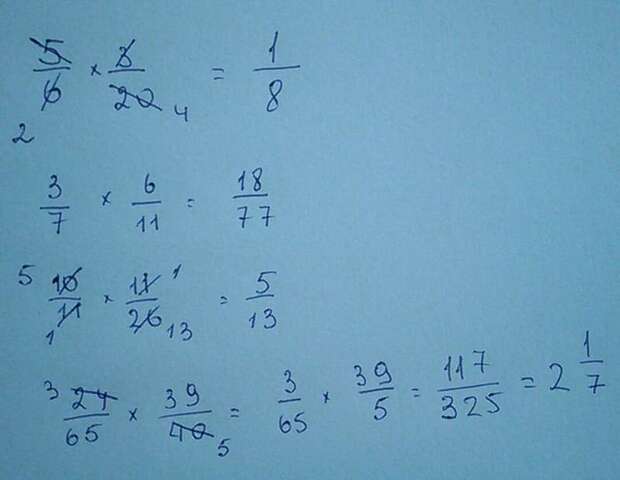 5/6 × 3/20 4 = 1/8
2
3/7 × 6/11 = 18/77
5 10/11 1 × 11/26 1 13 = 5/13
3 24/65 × 39/40 5 = 3/65 × 39/5 = 117/325 = 2 1/7